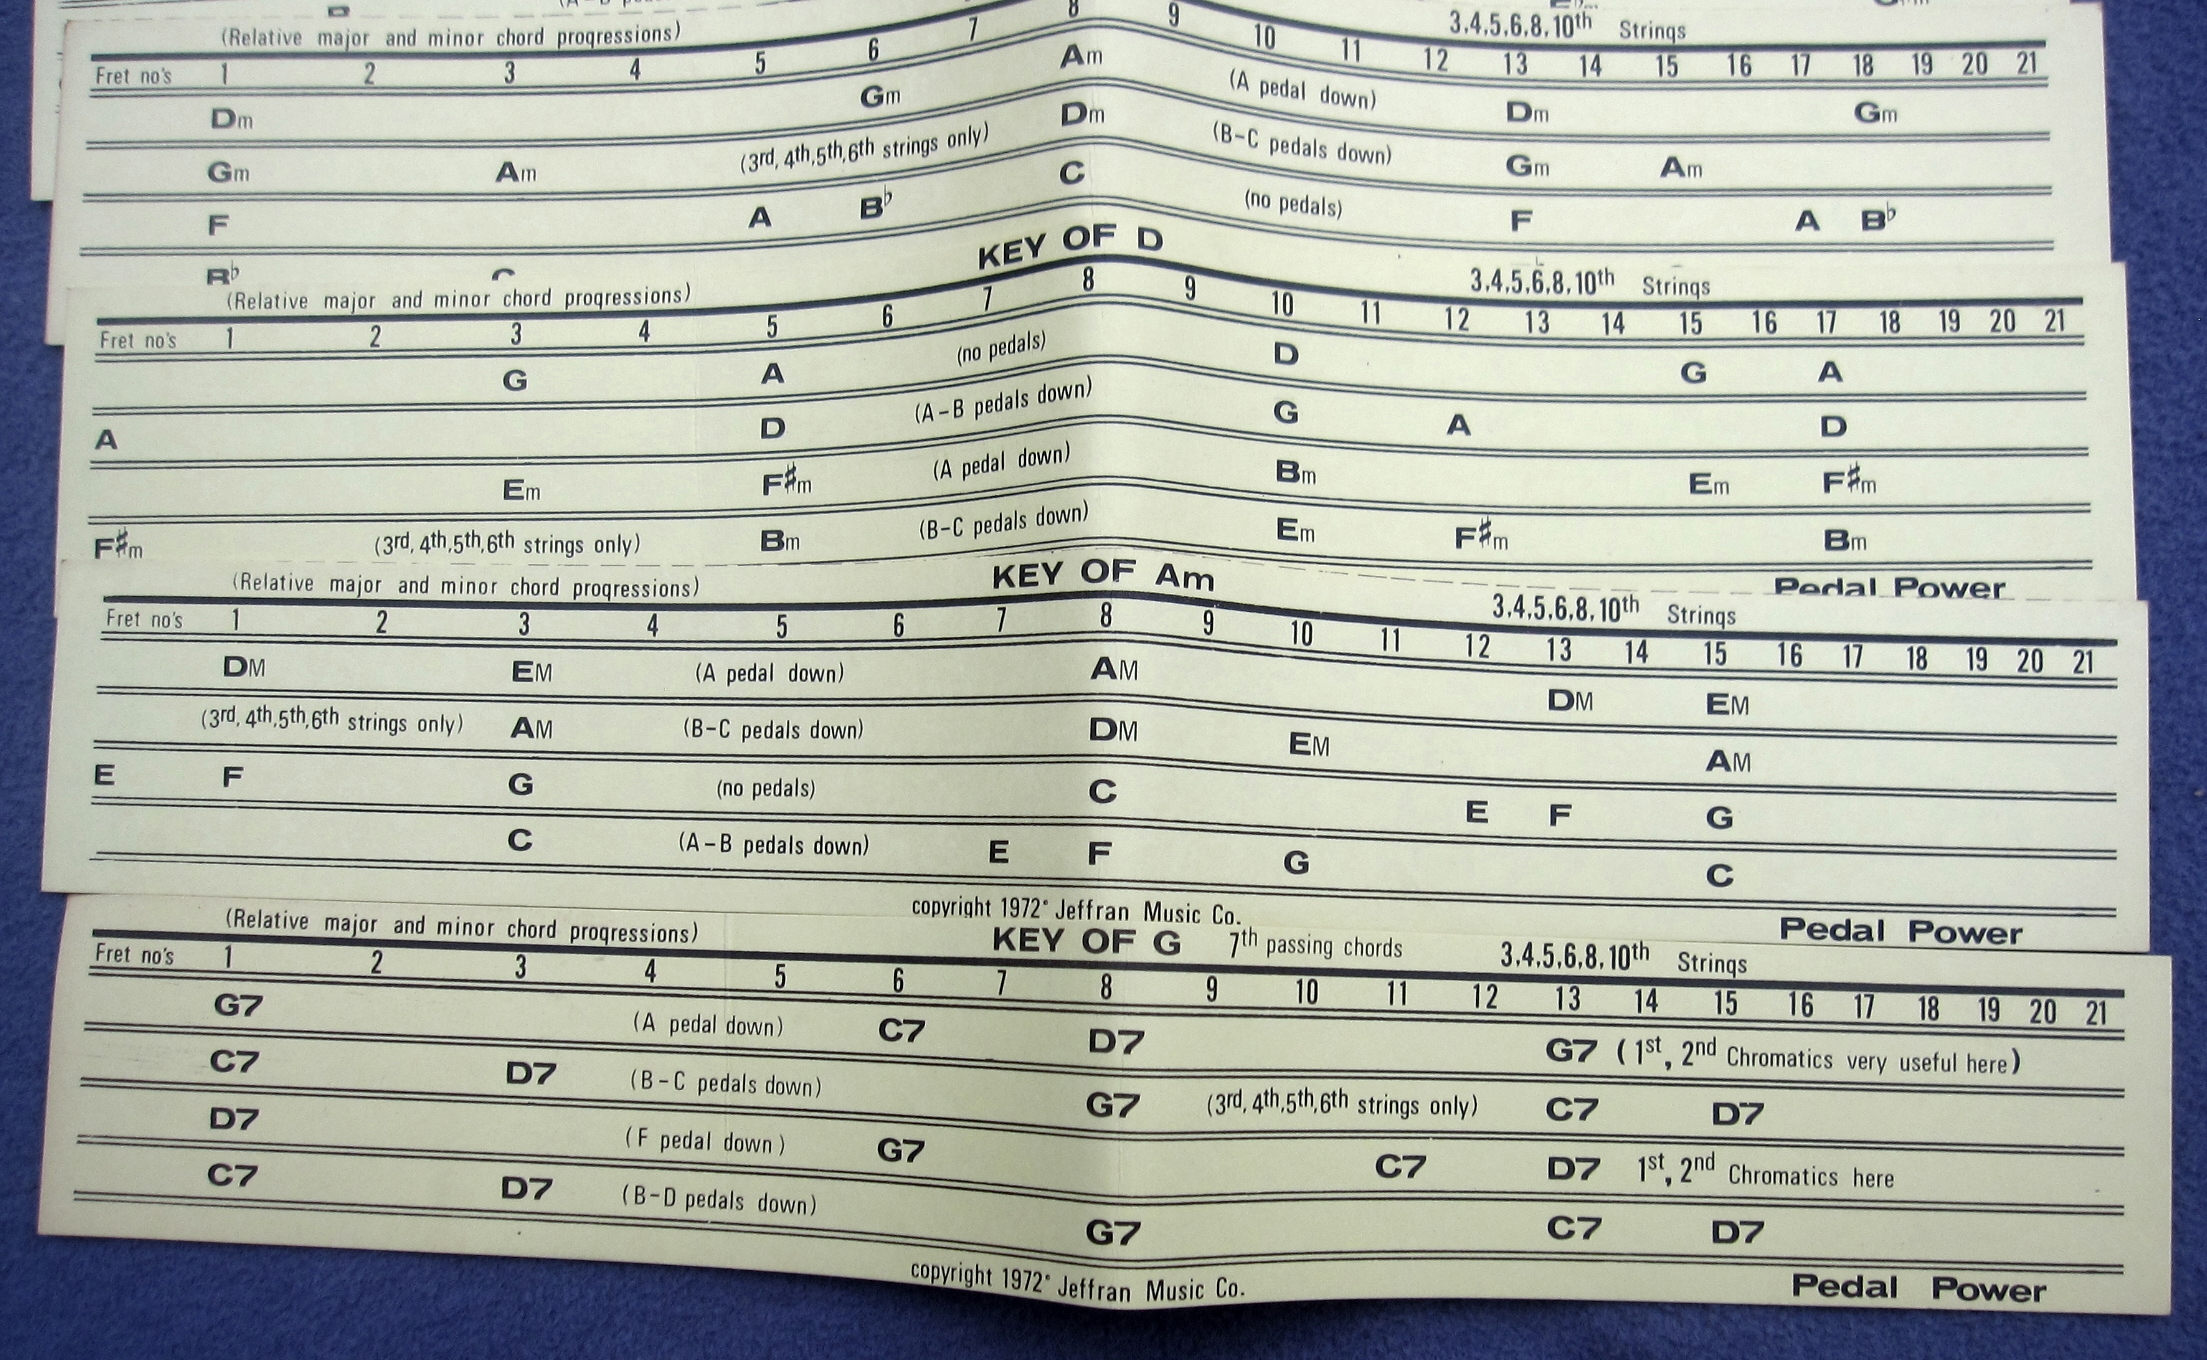 (Relative major and minor chord progressions) 3,4,5,6,8,10th Strings
Fret no's 1 2 3 4 5 6 7 8 9 10 11 12 13 14 15 16 17 18 19 20 21
Dm Gm Am (A pedal down) Dm Gm
Gm Am (3rd, 4th,5th,6th strings only) Dm (B-C pedals down) Gm Am
F A B♭ C (no pedals) F A B♭
B♭
KEY OF D
(Relative major and minor chord progressions) 3,4,5,6,8,10th Strings
Fret no's 1 2 3 4 5 6 7 8 9 10 11 12 13 14 15 16 17 18 19 20 21
G A (no pedals) D G A
A D (A-B pedals down) G A D
Em F♯m (A pedal down) Bm Em F♯m
F♯m (3rd, 4th,5th,6th strings only) Bm (B-C pedals down) Em F♯m Bm
Pedal Power
(Relative major and minor chord progressions) KEY OF Am 3,4,5,6,8,10th Strings
Fret no's 1 2 3 4 5 6 7 8 9 10 11 12 13 14 15 16 17 18 19 20 21
DM EM (A pedal down) AM DM EM
(3rd, 4th,5th,6th strings only) AM (B-C pedals down) DM EM AM
E F G (no pedals) C E F G
C (A-B pedals down) E F G C
copyright 1972° Jeffran Music Co. Pedal Power
(Relative major and minor chord progressions) KEY OF G 7th passing chords 3,4,5,6,8,10th Strings
Fret no's 1 2 3 4 5 6 7 8 9 10 11 12 13 14 15 16 17 18 19 20 21
G7 (A pedal down) C7 D7 G7 (1st, 2nd Chromatics very useful here)
C7 D7 (B-C pedals down) G7 (3rd, 4th,5th,6th strings only) C7 D7
D7 (F pedal down) G7 C7 D7 1st, 2nd Chromatics here
C7 D7 (B-D pedals down) G7 C7 D7
copyright 1972° Jeffran Music Co. Pedal Power